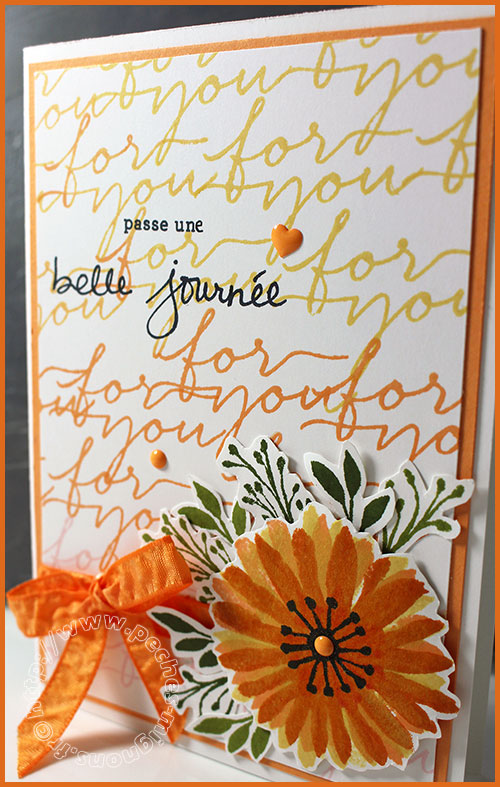 for for
you you you
for for for
you you you
passe une
for for
belle journée
you you
for
for you for
you you
for
you
http://www.peches-mignons.fr©